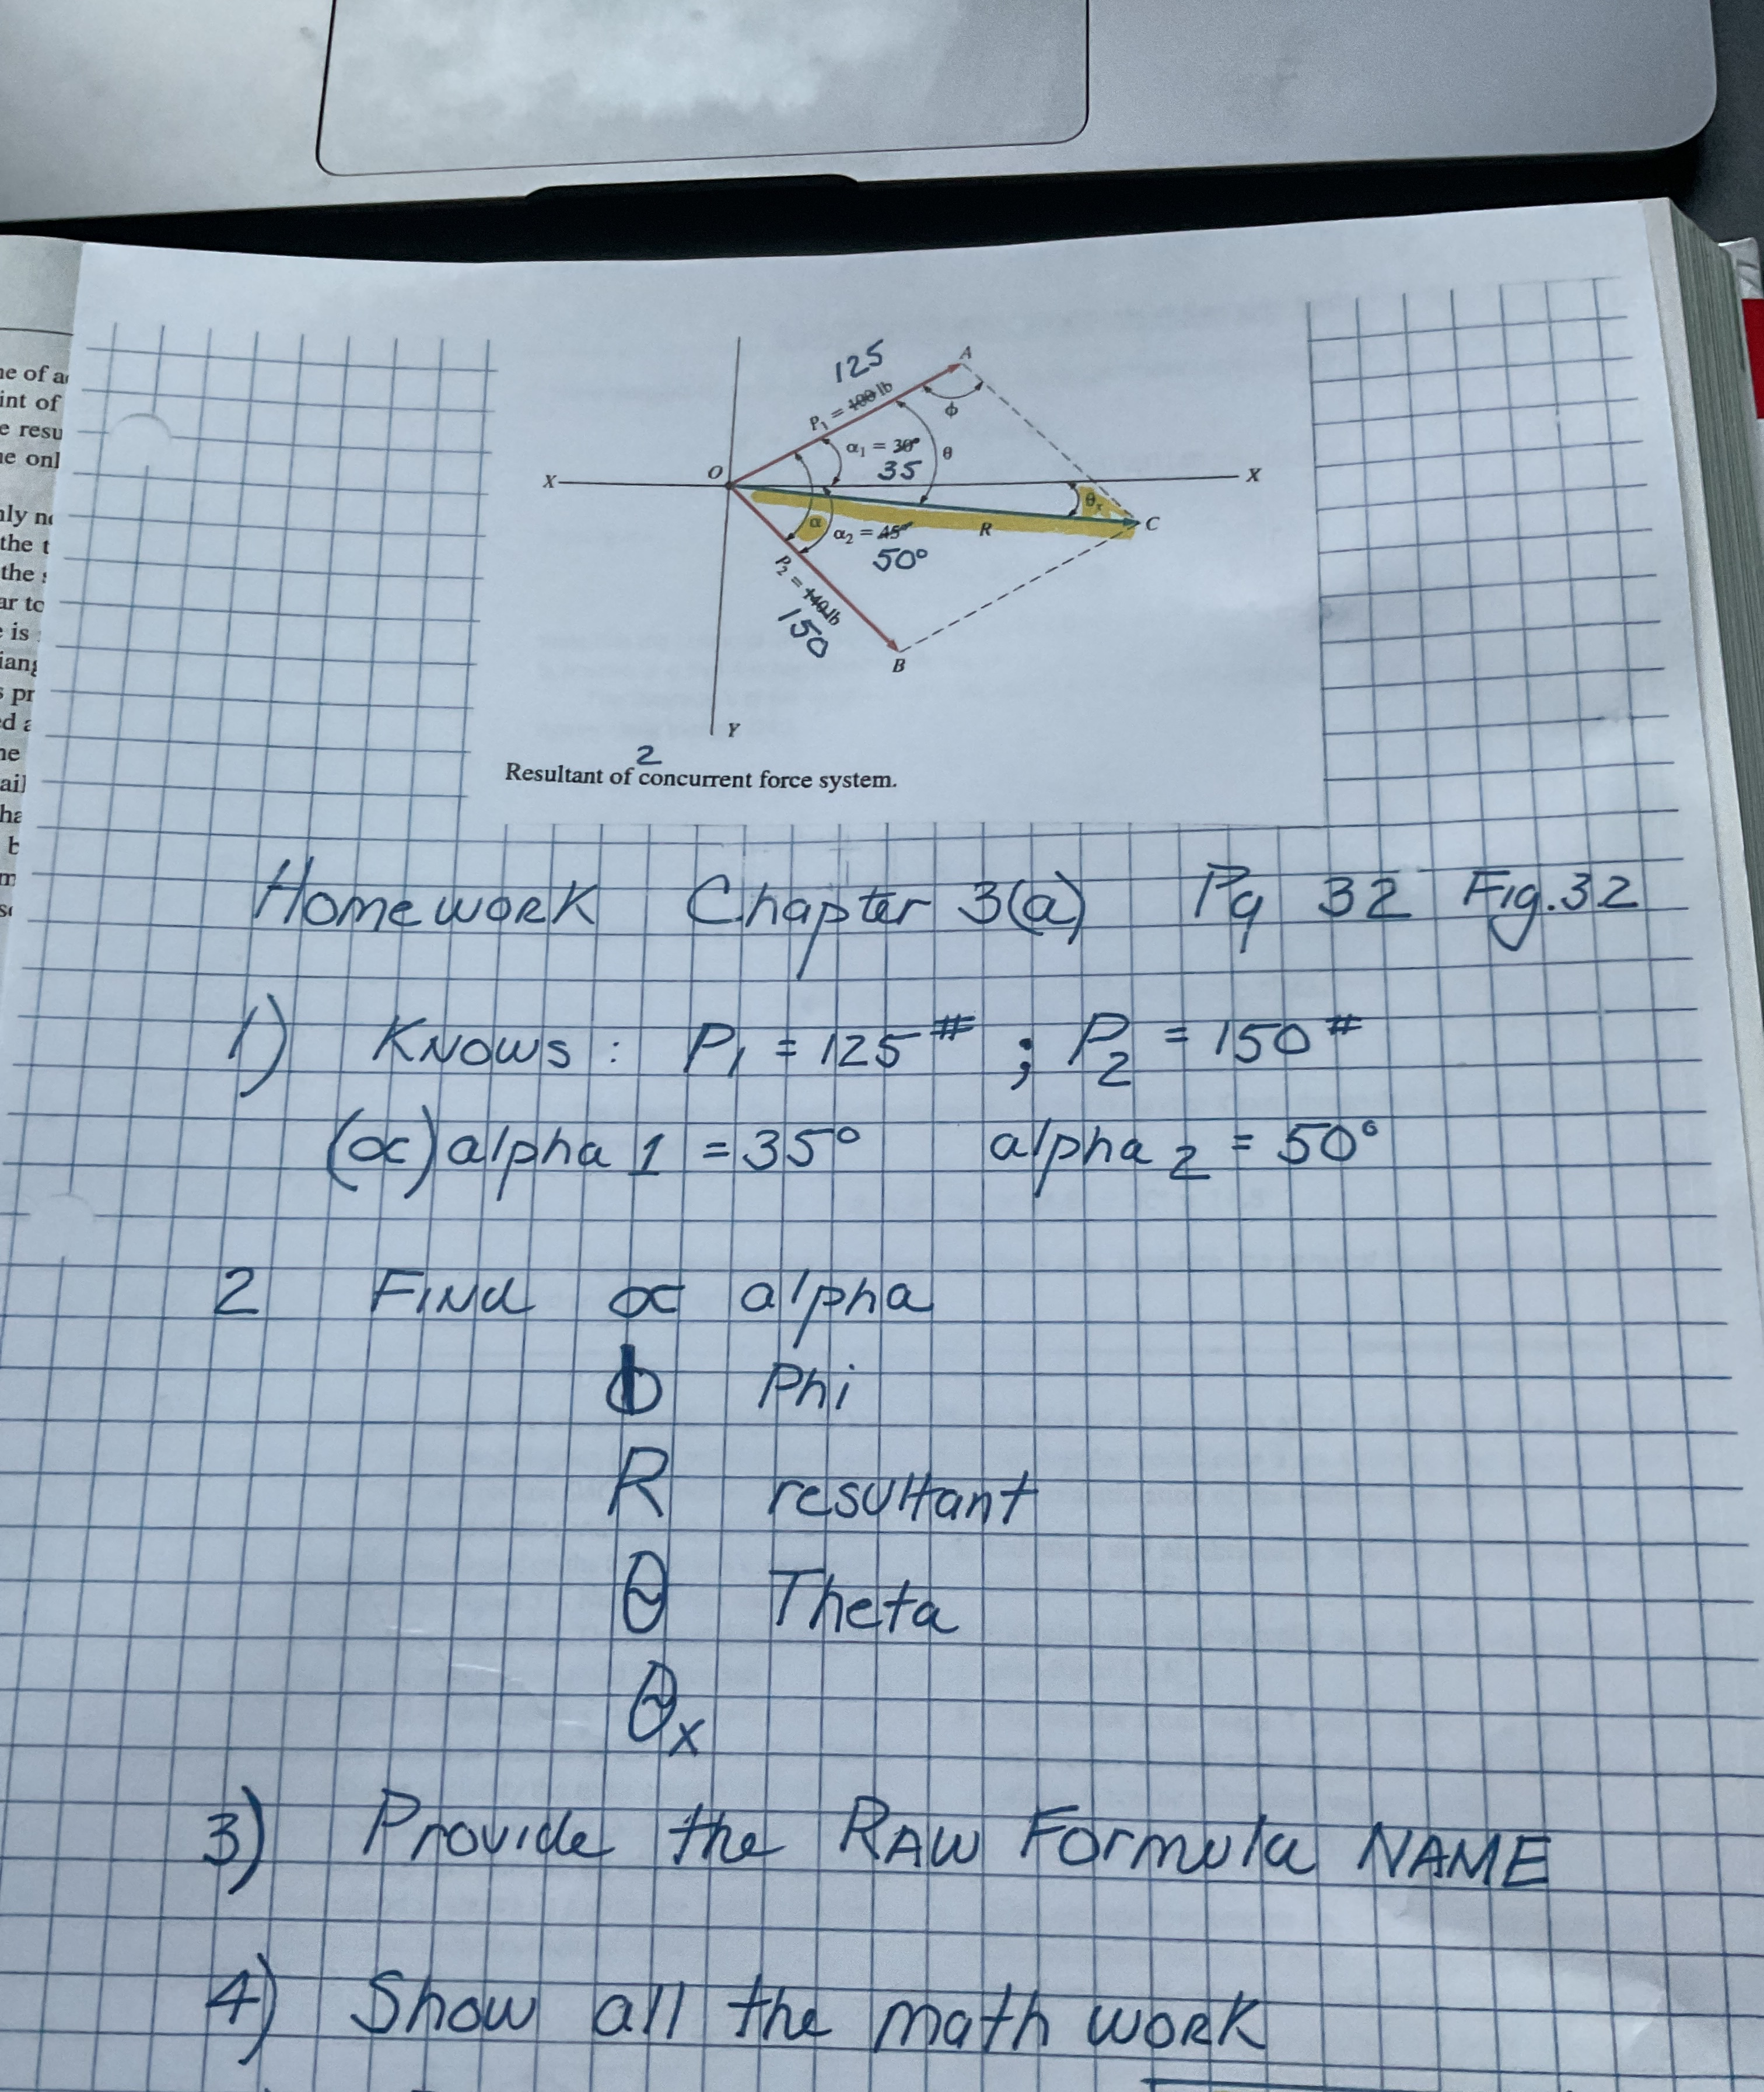 ne of a
int of
e resu
ne onl
nly n
the t
the
ar to
is
iang
s pr
ed a
ne
ail
ha
b
m
125
A
P₁ = 100 lb
ϕ
α₁ = 30°
θ
35
O
X
X
θx
C
α
α₂ = 45°
R
50°
P₂ = 140 lb
150
B
Y
2
Resultant of concurrent force system.
Homework Chapter 3(a) Pg 32 Fig.32
1) KNOWS : P₁ = 125# ; P₂ = 150#
(α) alpha 1 = 35° alpha 2 = 50°
2 FINd α alpha
ϕ Phi
R resultant
θ Theta
θx
3) Provide the RAW Formula NAME
4) Show all the math work